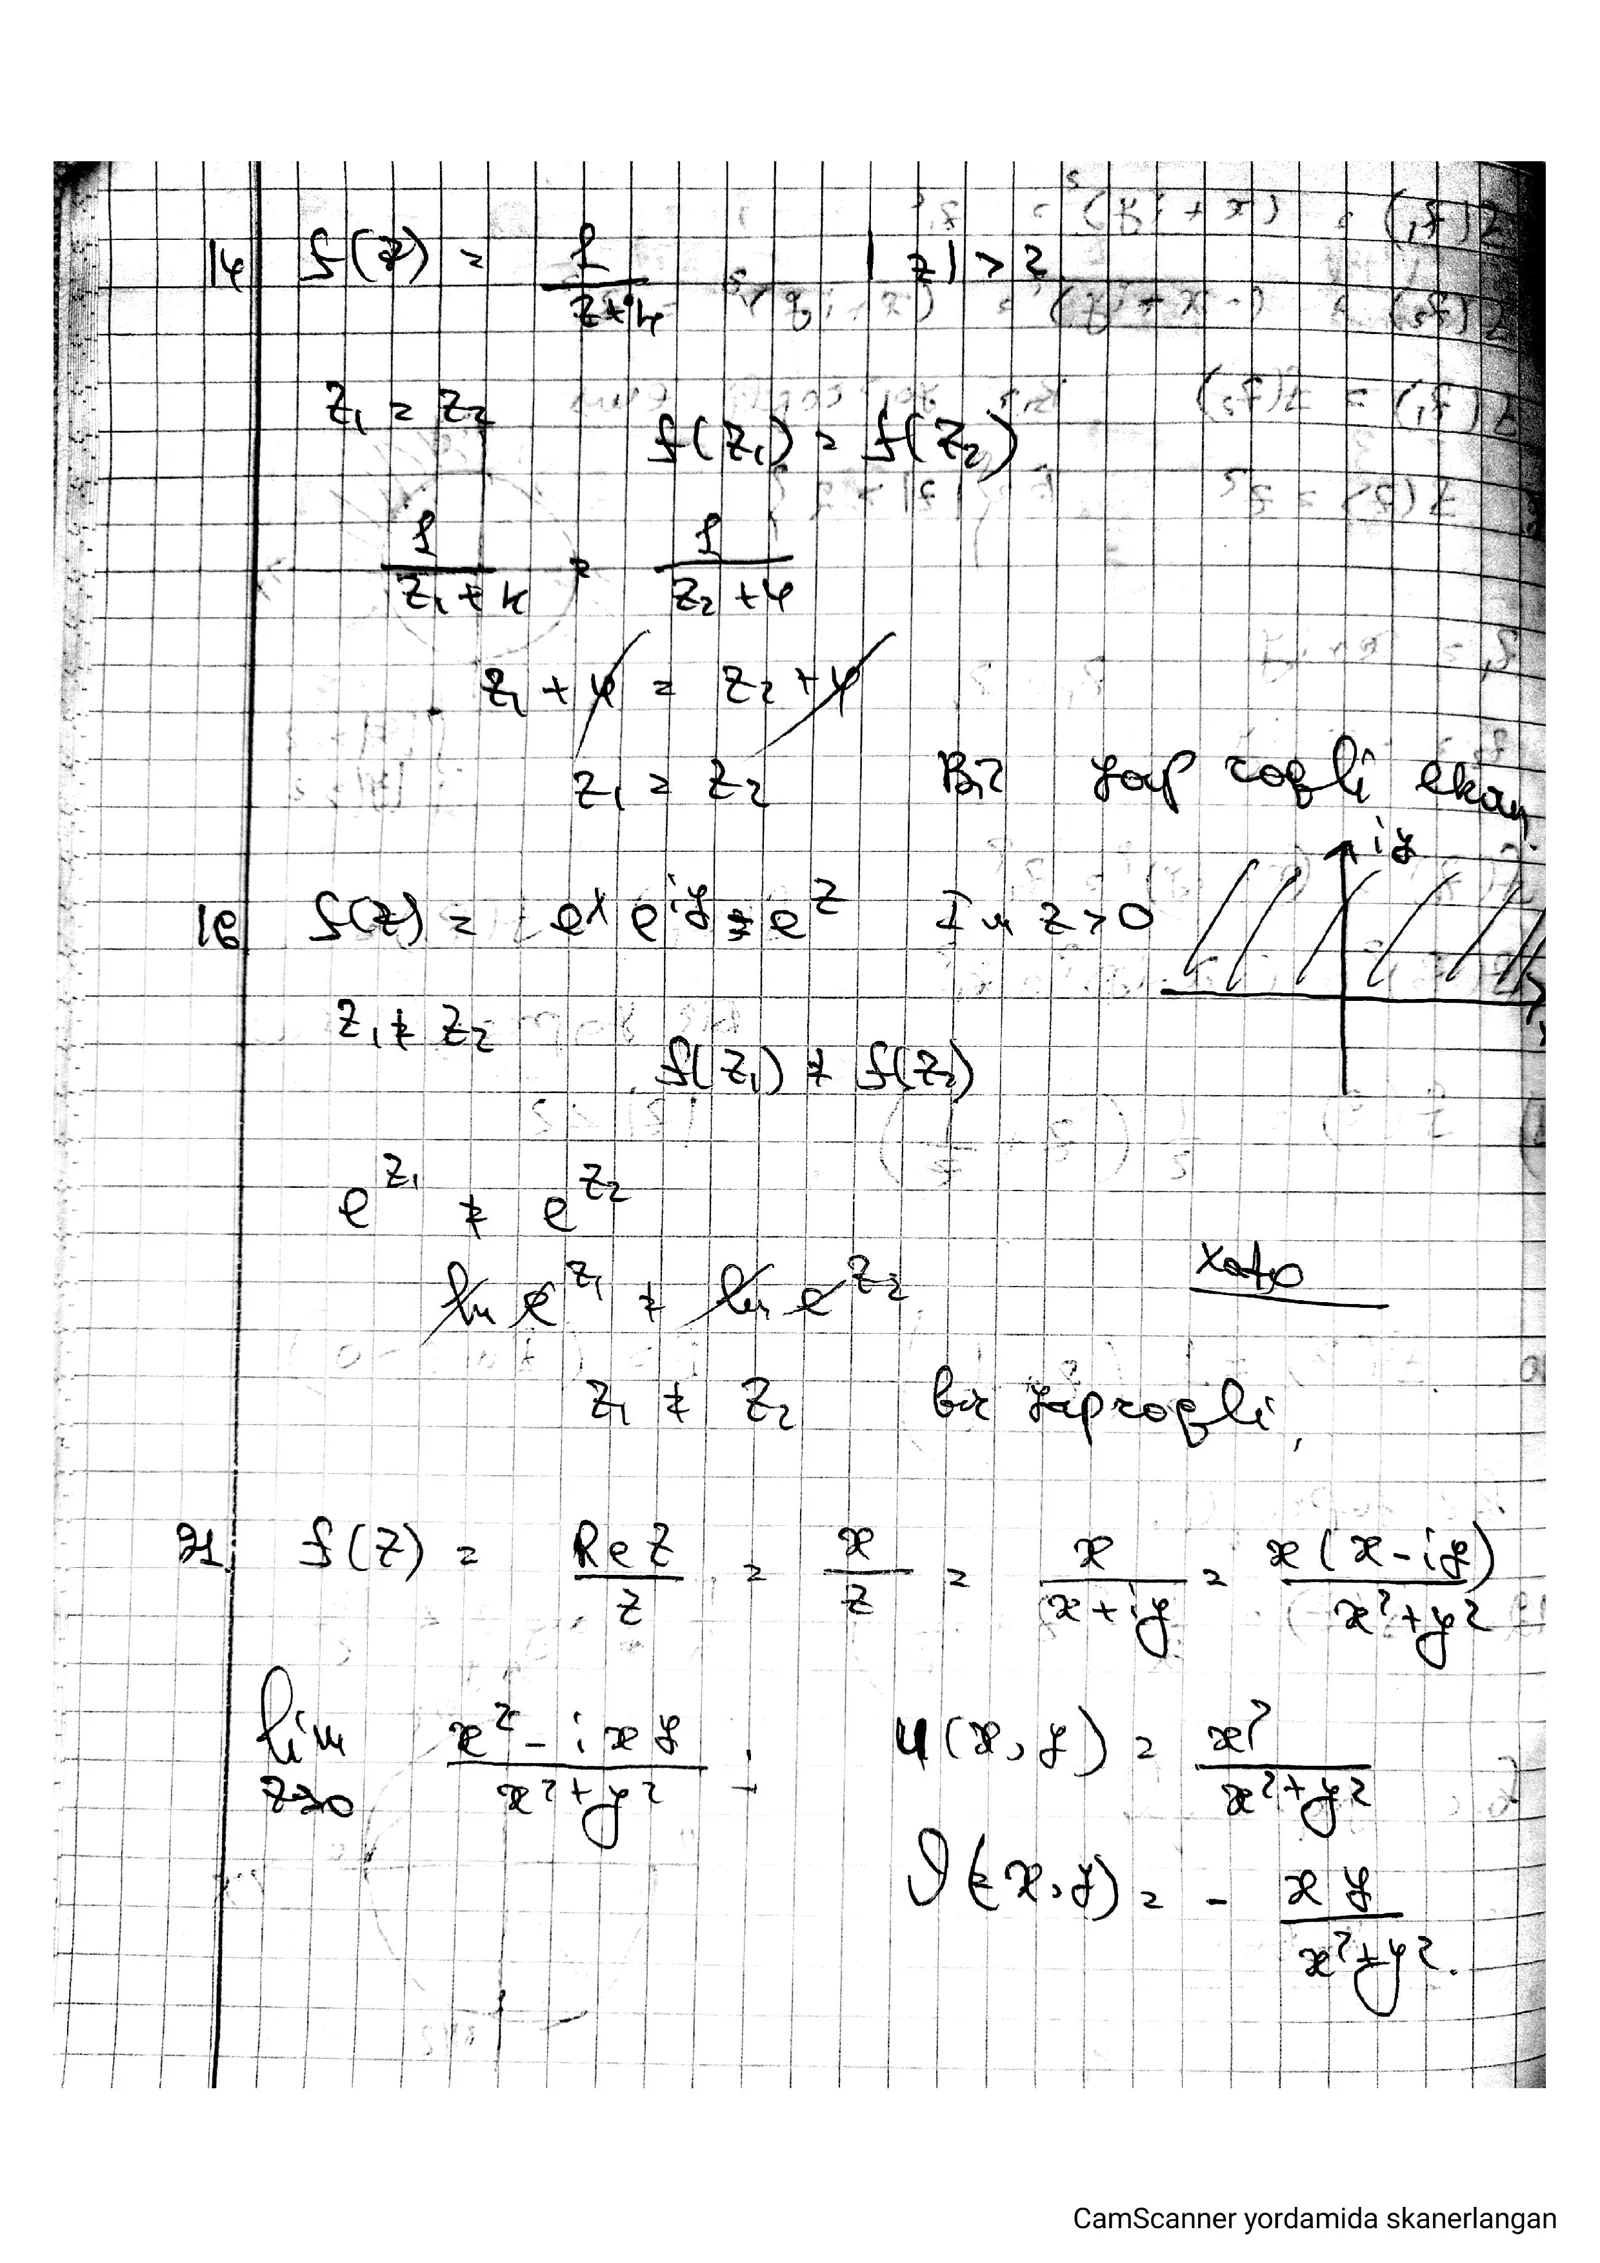 14 f(z) = 1/(z+4) |z| > 2
z₁ = z₂
f(z₁) = f(z₂)
1/(z₁+4) = 1/(z₂+4)
z₁ + 4 = z₂ + 4
z₁ = z₂ Bir yap roqli ekan.
iy
16 f(z) = eˣ e^{iy} = e^z Im z > 0
z₁ ≠ z₂
f(z₁) ≠ f(z₂)
e^{z₁} ≠ e^{z₂}
ln e^{z₁} ≠ ln e^{z₂} xato
z₁ ≠ z₂ bir yaproqli.
21 f(z) = Re z/z = x/z = x/(x+iy) = x(x-iy)/(x²+y²)
lim z→0 (x² - ixy)/(x²+y²) ; u(x,y) = x²/(x²+y²)
ϑ(x,y) = - xy/(x²+y²).
CamScanner yordamida skanerlangan